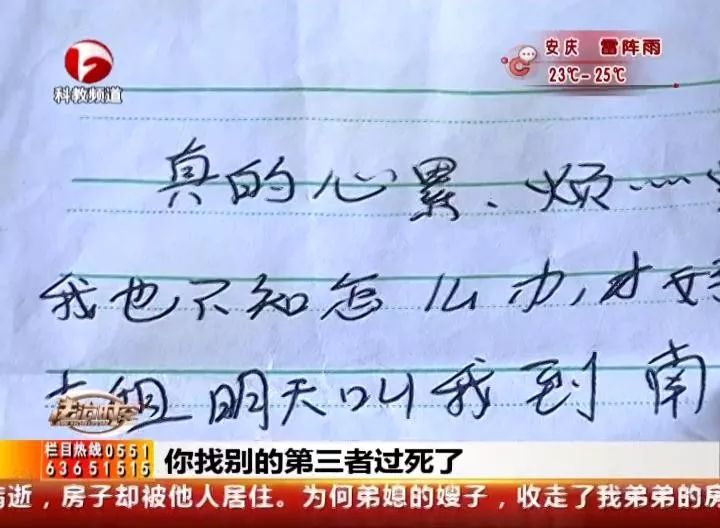 科教频道
安庆 雷阵雨
23℃-25℃
真的心累、烦
我也不知怎么办,才好
姐明天叫我到南
法治时空
栏目热线0551
63651515
你找别的第三者过死了
逝，房子却被他人居住。为何弟媳的嫂子，收走了我弟弟的房